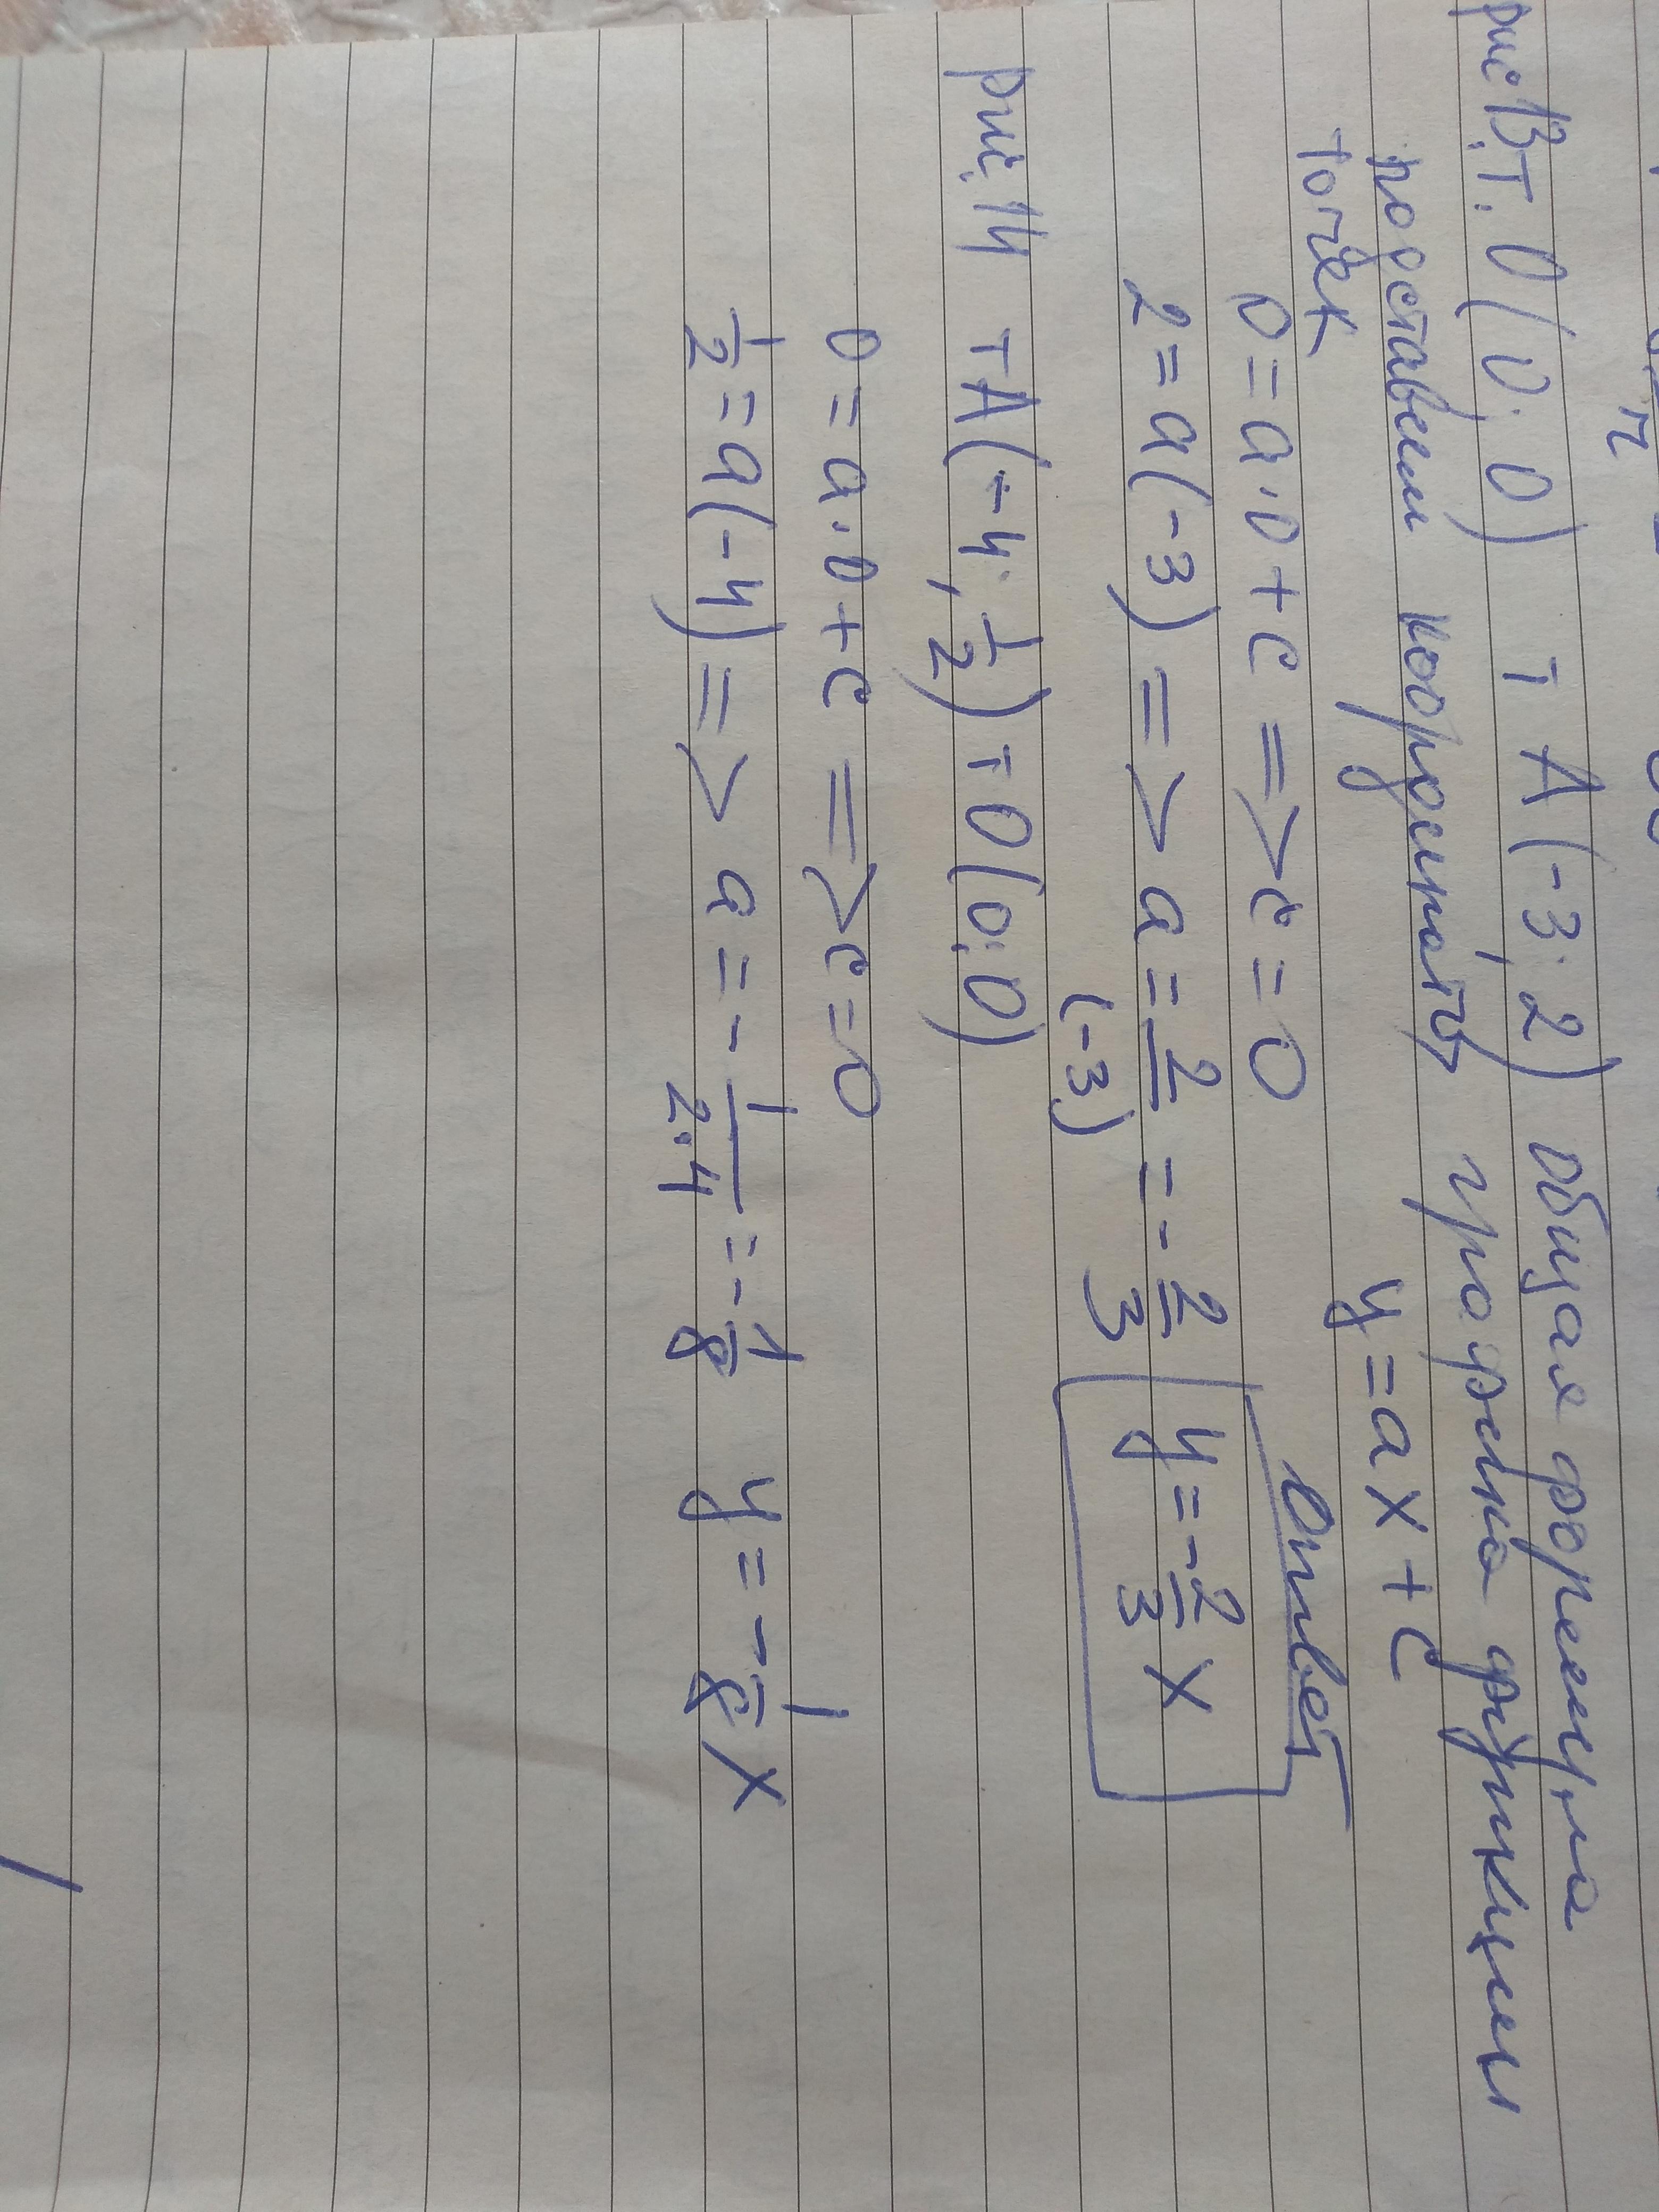 рис 13. т. O(0; 0) т A(-3; 2) общая формула
подставим координаты графика функции
точек y = ax + c
0 = a·0 + c => c = 0
2 = a(-3) => a = 2/(-3) = -2/3 Ответ y = -2/3 x
рис. 14 т A(-4; 1/2) т O(0; 0)
0 = a·0 + c => c = 0
1/2 = a(-4) => a = -1/(2·4) = -1/8 y = -1/8 x